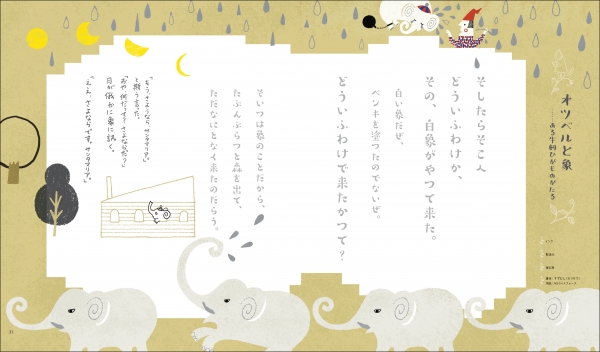 オツベルと象
ある牛飼ひがものがたる
そしたらそこへ
どういふわけか、
その、白象がやつて来た。
白い象だぜ、
ペンキを塗つたのでないぜ。
どういふわけで来たかつて?
そいつは象のことだから、
たぶんぶらつと森を出て、
ただなにとなく来たのだらう。
「もう、さやうなら、サンタマリア。」
と斯う言つた。
「おや、何だつて?さよならだ?」
月が俄かに象に訊く。
「ええ、さよならです。サンタマリア。」
31